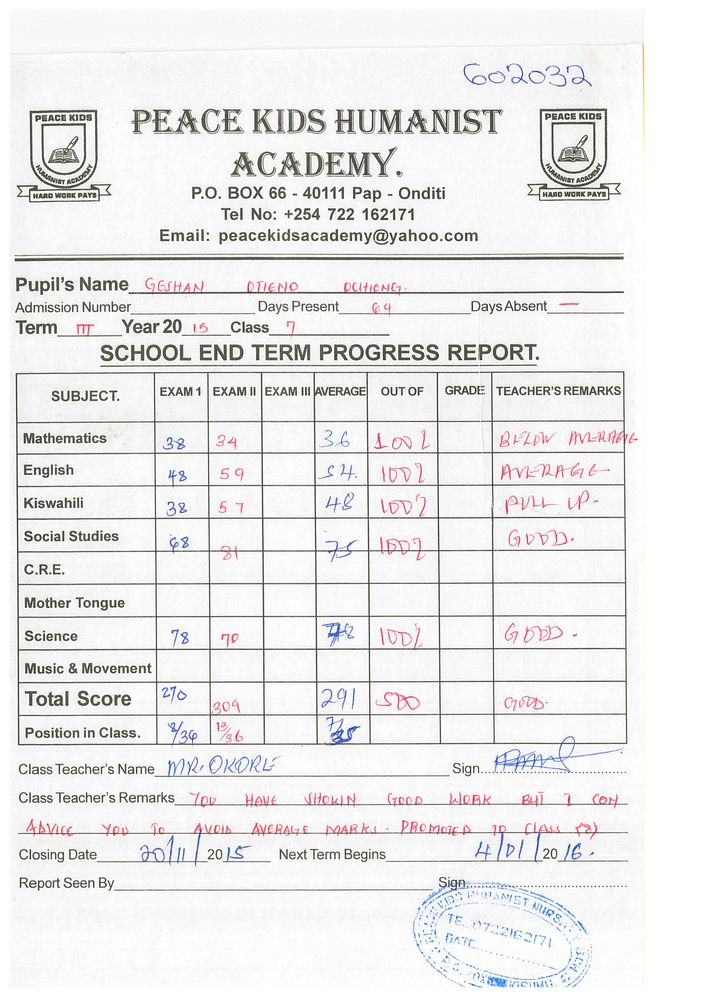 602032
PEACE KIDS
HUMANIST ACADEMY
HARD WORK PAYS
PEACE KIDS HUMANIST
ACADEMY.
PEACE KIDS
HUMANIST ACADEMY
HARD WORK PAYS
P.O. BOX 66 - 40111 Pap - Onditi
Tel No: +254 722 162171
Email: peacekidsacademy@yahoo.com
Pupil's Name GESHAN OTIENO OCHIENG.
Admission Number Days Present 64 Days Absent —
Term III Year 20 15 Class 7
SCHOOL END TERM PROGRESS REPORT.
SUBJECT. EXAM 1 EXAM II EXAM III AVERAGE OUT OF GRADE TEACHER'S REMARKS
Mathematics 38 34 36 100% BELOW AVERAGE
English 48 59 54. 100% AVERAGE
Kiswahili 38 57 48 100% PULL UP-
Social Studies 68 81 75 100% GOOD.
C.R.E.
Mother Tongue
Science 78 70 100% GOOD.
Music & Movement
Total Score 270 309 291 500 GOOD.
Position in Class. 8/36 13/36
Class Teacher's Name MR. OKORE Sign
Class Teacher's Remarks YOU HAVE SHOWN GOOD WORK BUT I CAN
ADVICE YOU TO AVOID AVERAGE MARKS. PROMOTED TO CLASS
Closing Date 20/11/2015 Next Term Begins 4/01/2016.
Report Seen By Sign
HUMANIST NURS
TE. 0722162171
DATE